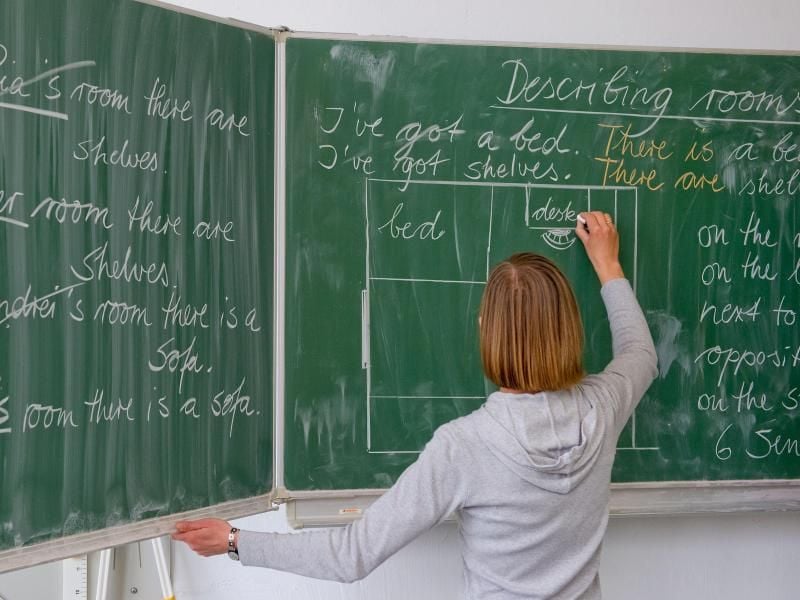 ia's room there are
shelves.
er room there are
Shelves.
ndrei's room there is a
Sofa.
room there is a sofa.
Describing rooms
I've got a bed. There is a be
I've got shelves. There are shel
bed
desk
on the r
on the l
next to
opposit
on the s
6 Sen